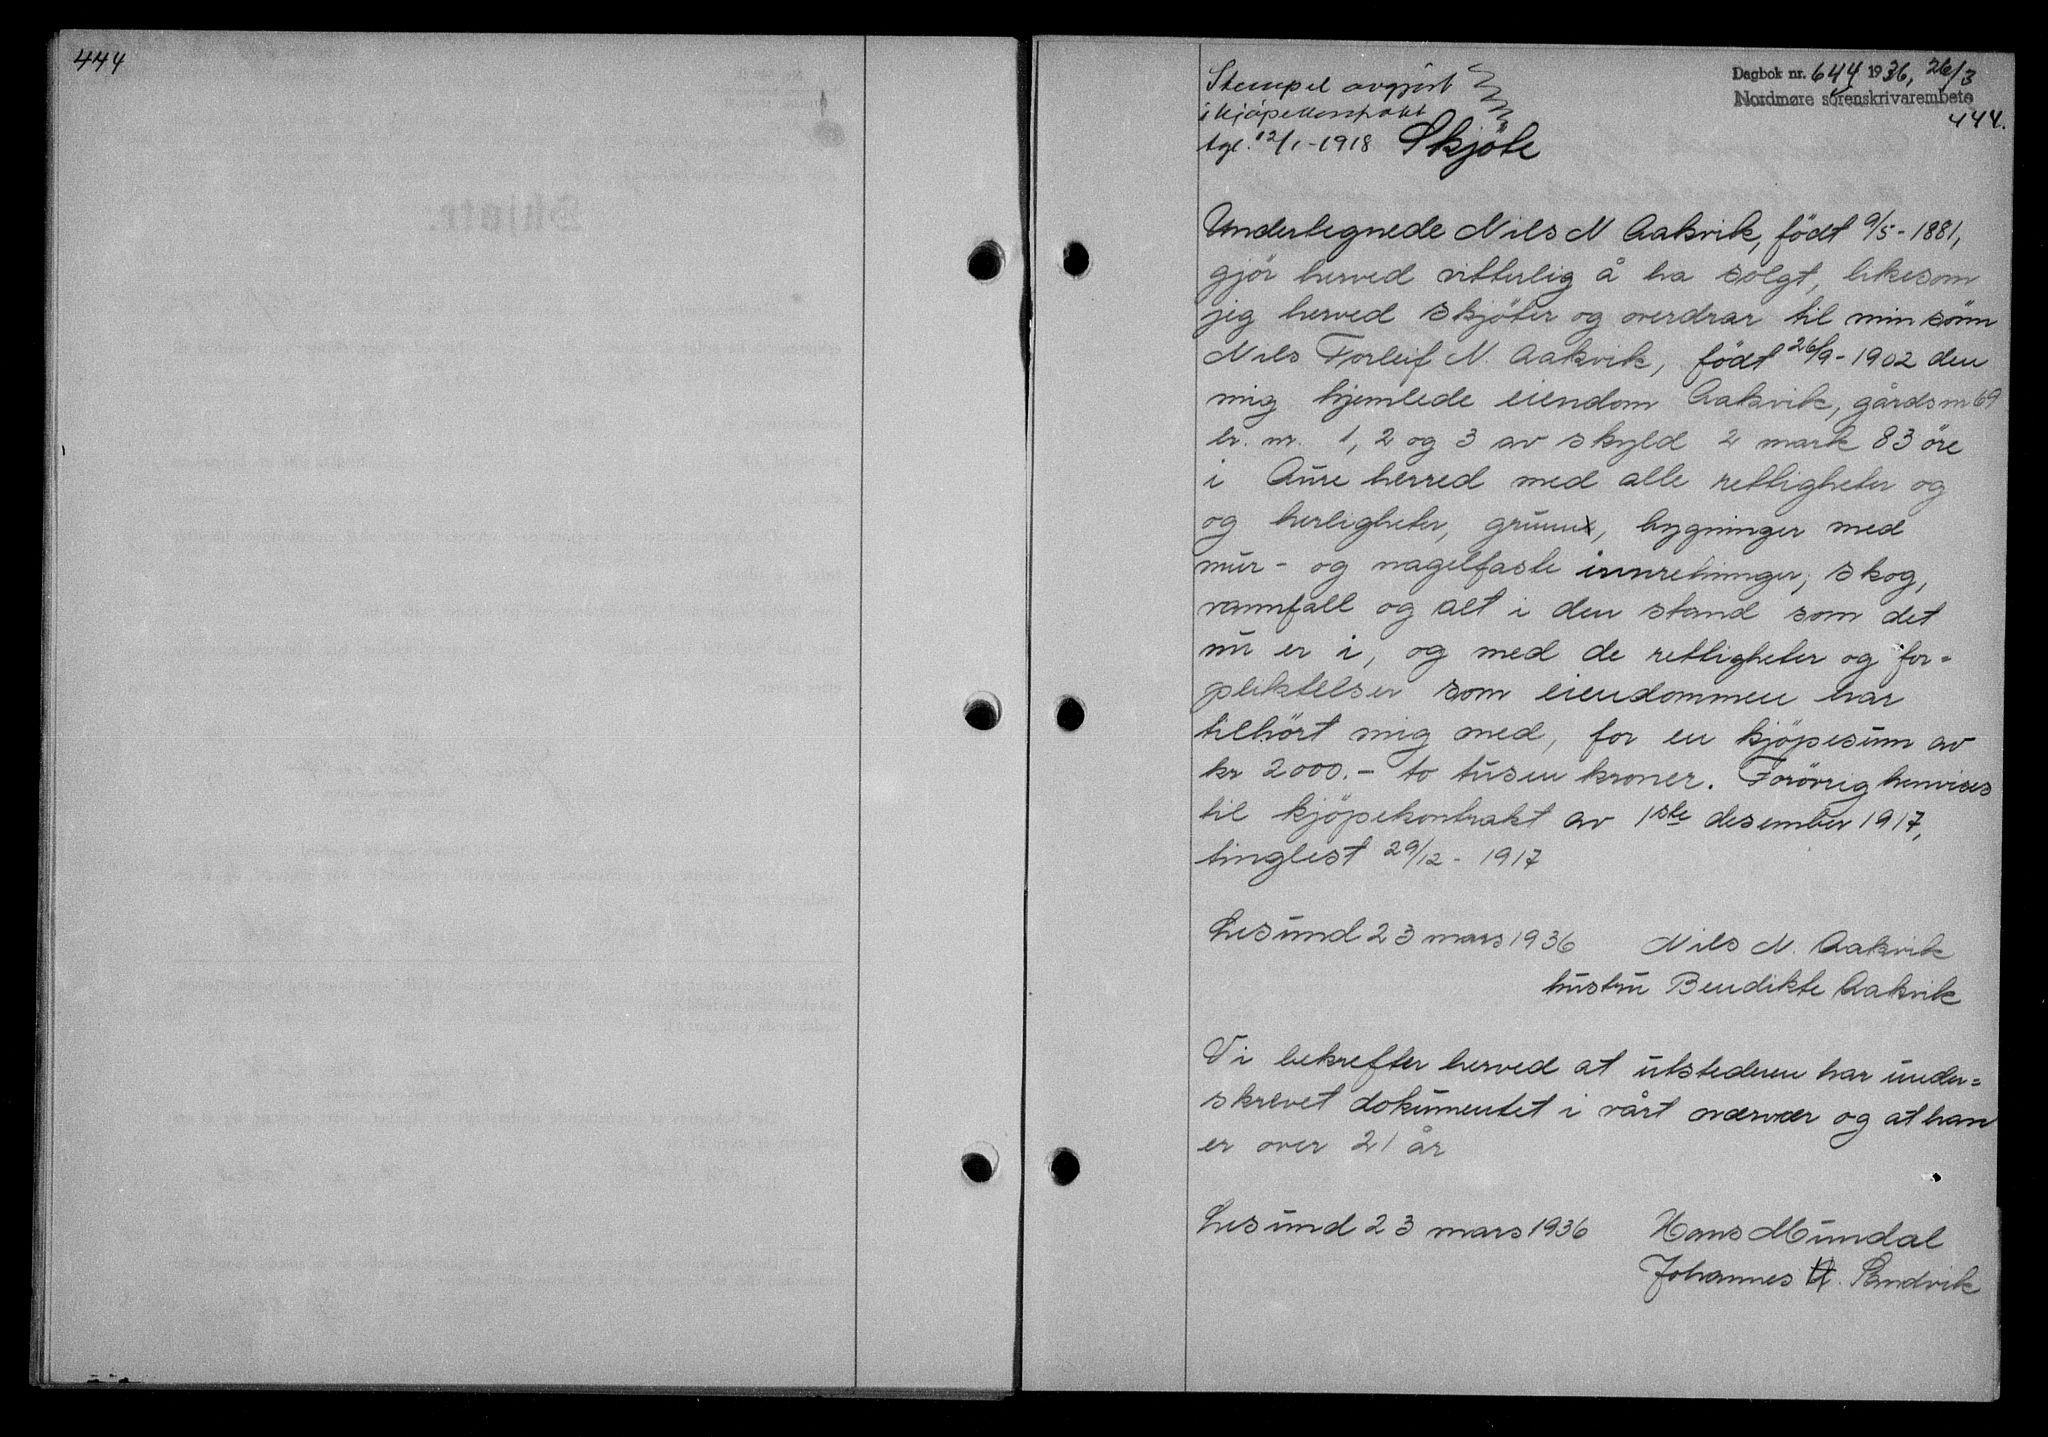 444
Dagbok nr. 644 1936, 26/3
Nordmøre sorenskrivarembete
444.
Stempel avgjort
i kjøpekontrakt
tgl. 12/1-1918 Skjöte
Undertegnede Nils N Aakvik, födt 9/5-1881,
gjör herved vitterlig å ha solgt, likesom
jeg herved skjöter og overdrar til min sönn
Nils Torleif N. Aakvik, födt 26/9-1902 den
mig hjemlede eiendom Aakvik, gårdsnr 69
br. nr. 1, 2 og 3 av skyld 2 mark 83 öre
i Aure herred med alle rettigheter og
og herligheter, grunn, bygninger med
mur- og nagelfaste innretninger, skog,
vannfall og alt i den stand som det
nu er i, og med de rettigheter og for=
pliktelser som eiendommen har
tilhört mig med, for en kjöpesum av
kr 2000.- to tusen kroner. Forövrig henvises
til kjöpekontrakt av 1ste desember 1917,
tinglest 29/12-1917
Lesund 23 mars 1936 Nils N. Aakvik
hustru Bendikte Aakvik
Vi bekrefter herved at utstederen har under=
skrevet dokumentet i vårt nærvær og at han
er over 21 år
Lesund 23 mars 1936 Hans Mundal
Johannes Sandvik